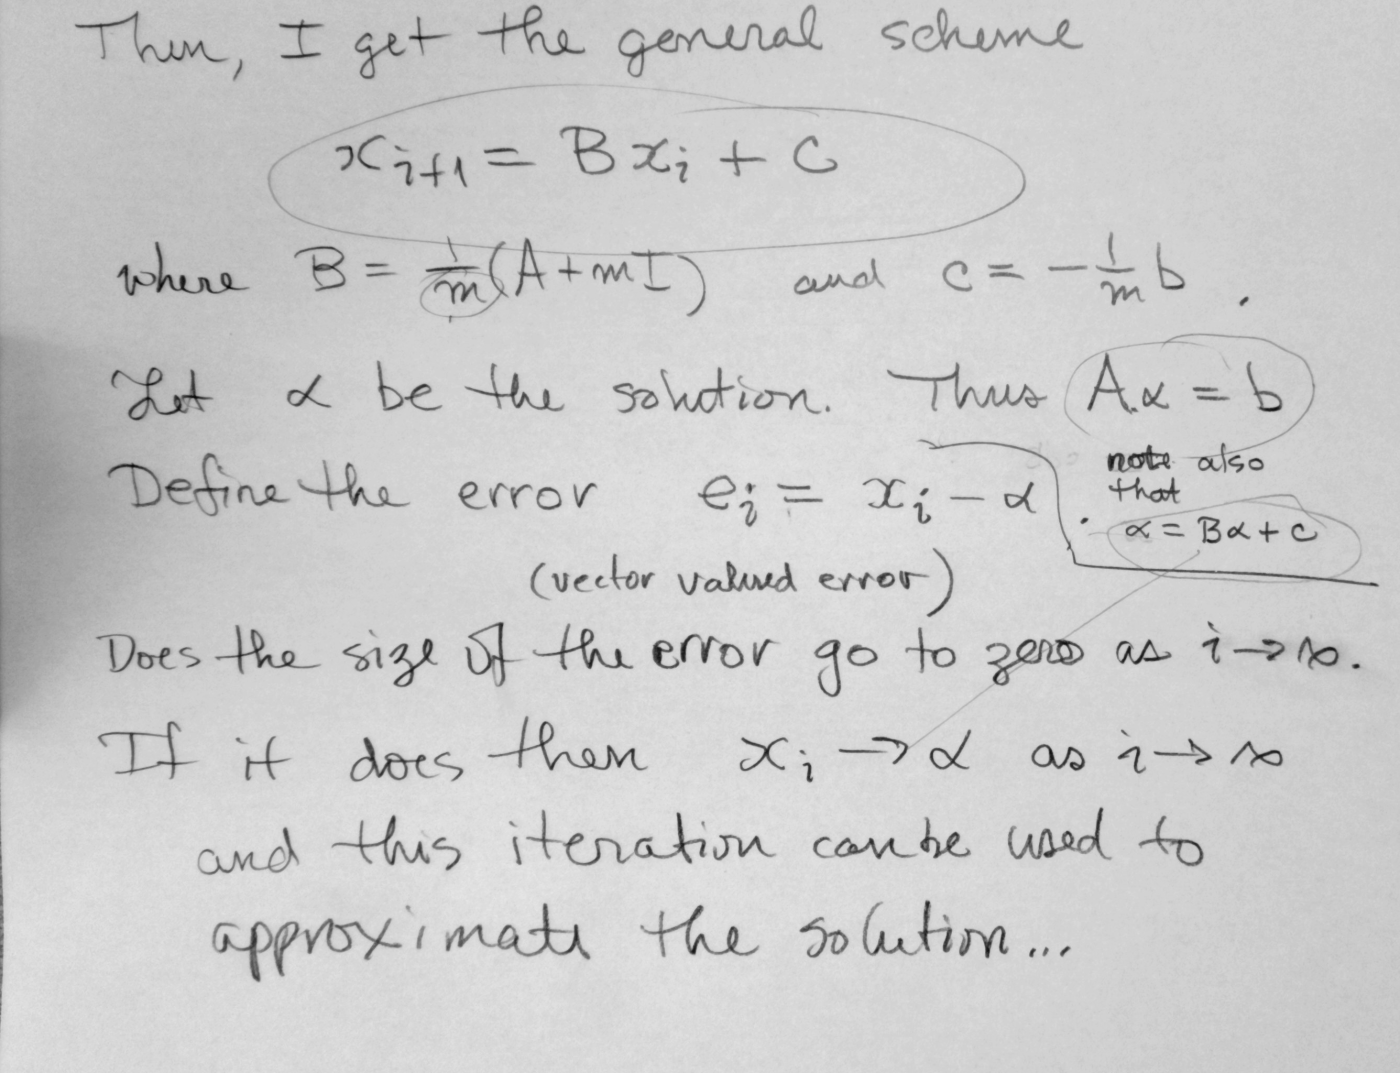 Then, I get the general scheme
x_{i+1} = B x_i + c
where B = 1/m (A + mI) and c = - 1/m b .
Let α be the solution. Thus Aα = b
note also
that
α = Bα + c
Define the error e_i = x_i - α .
(vector valued error)
Does the size of the error go to zero as i → ∞.
If it does then x_i → α as i → ∞
and this iteration can be used to
approximate the solution...